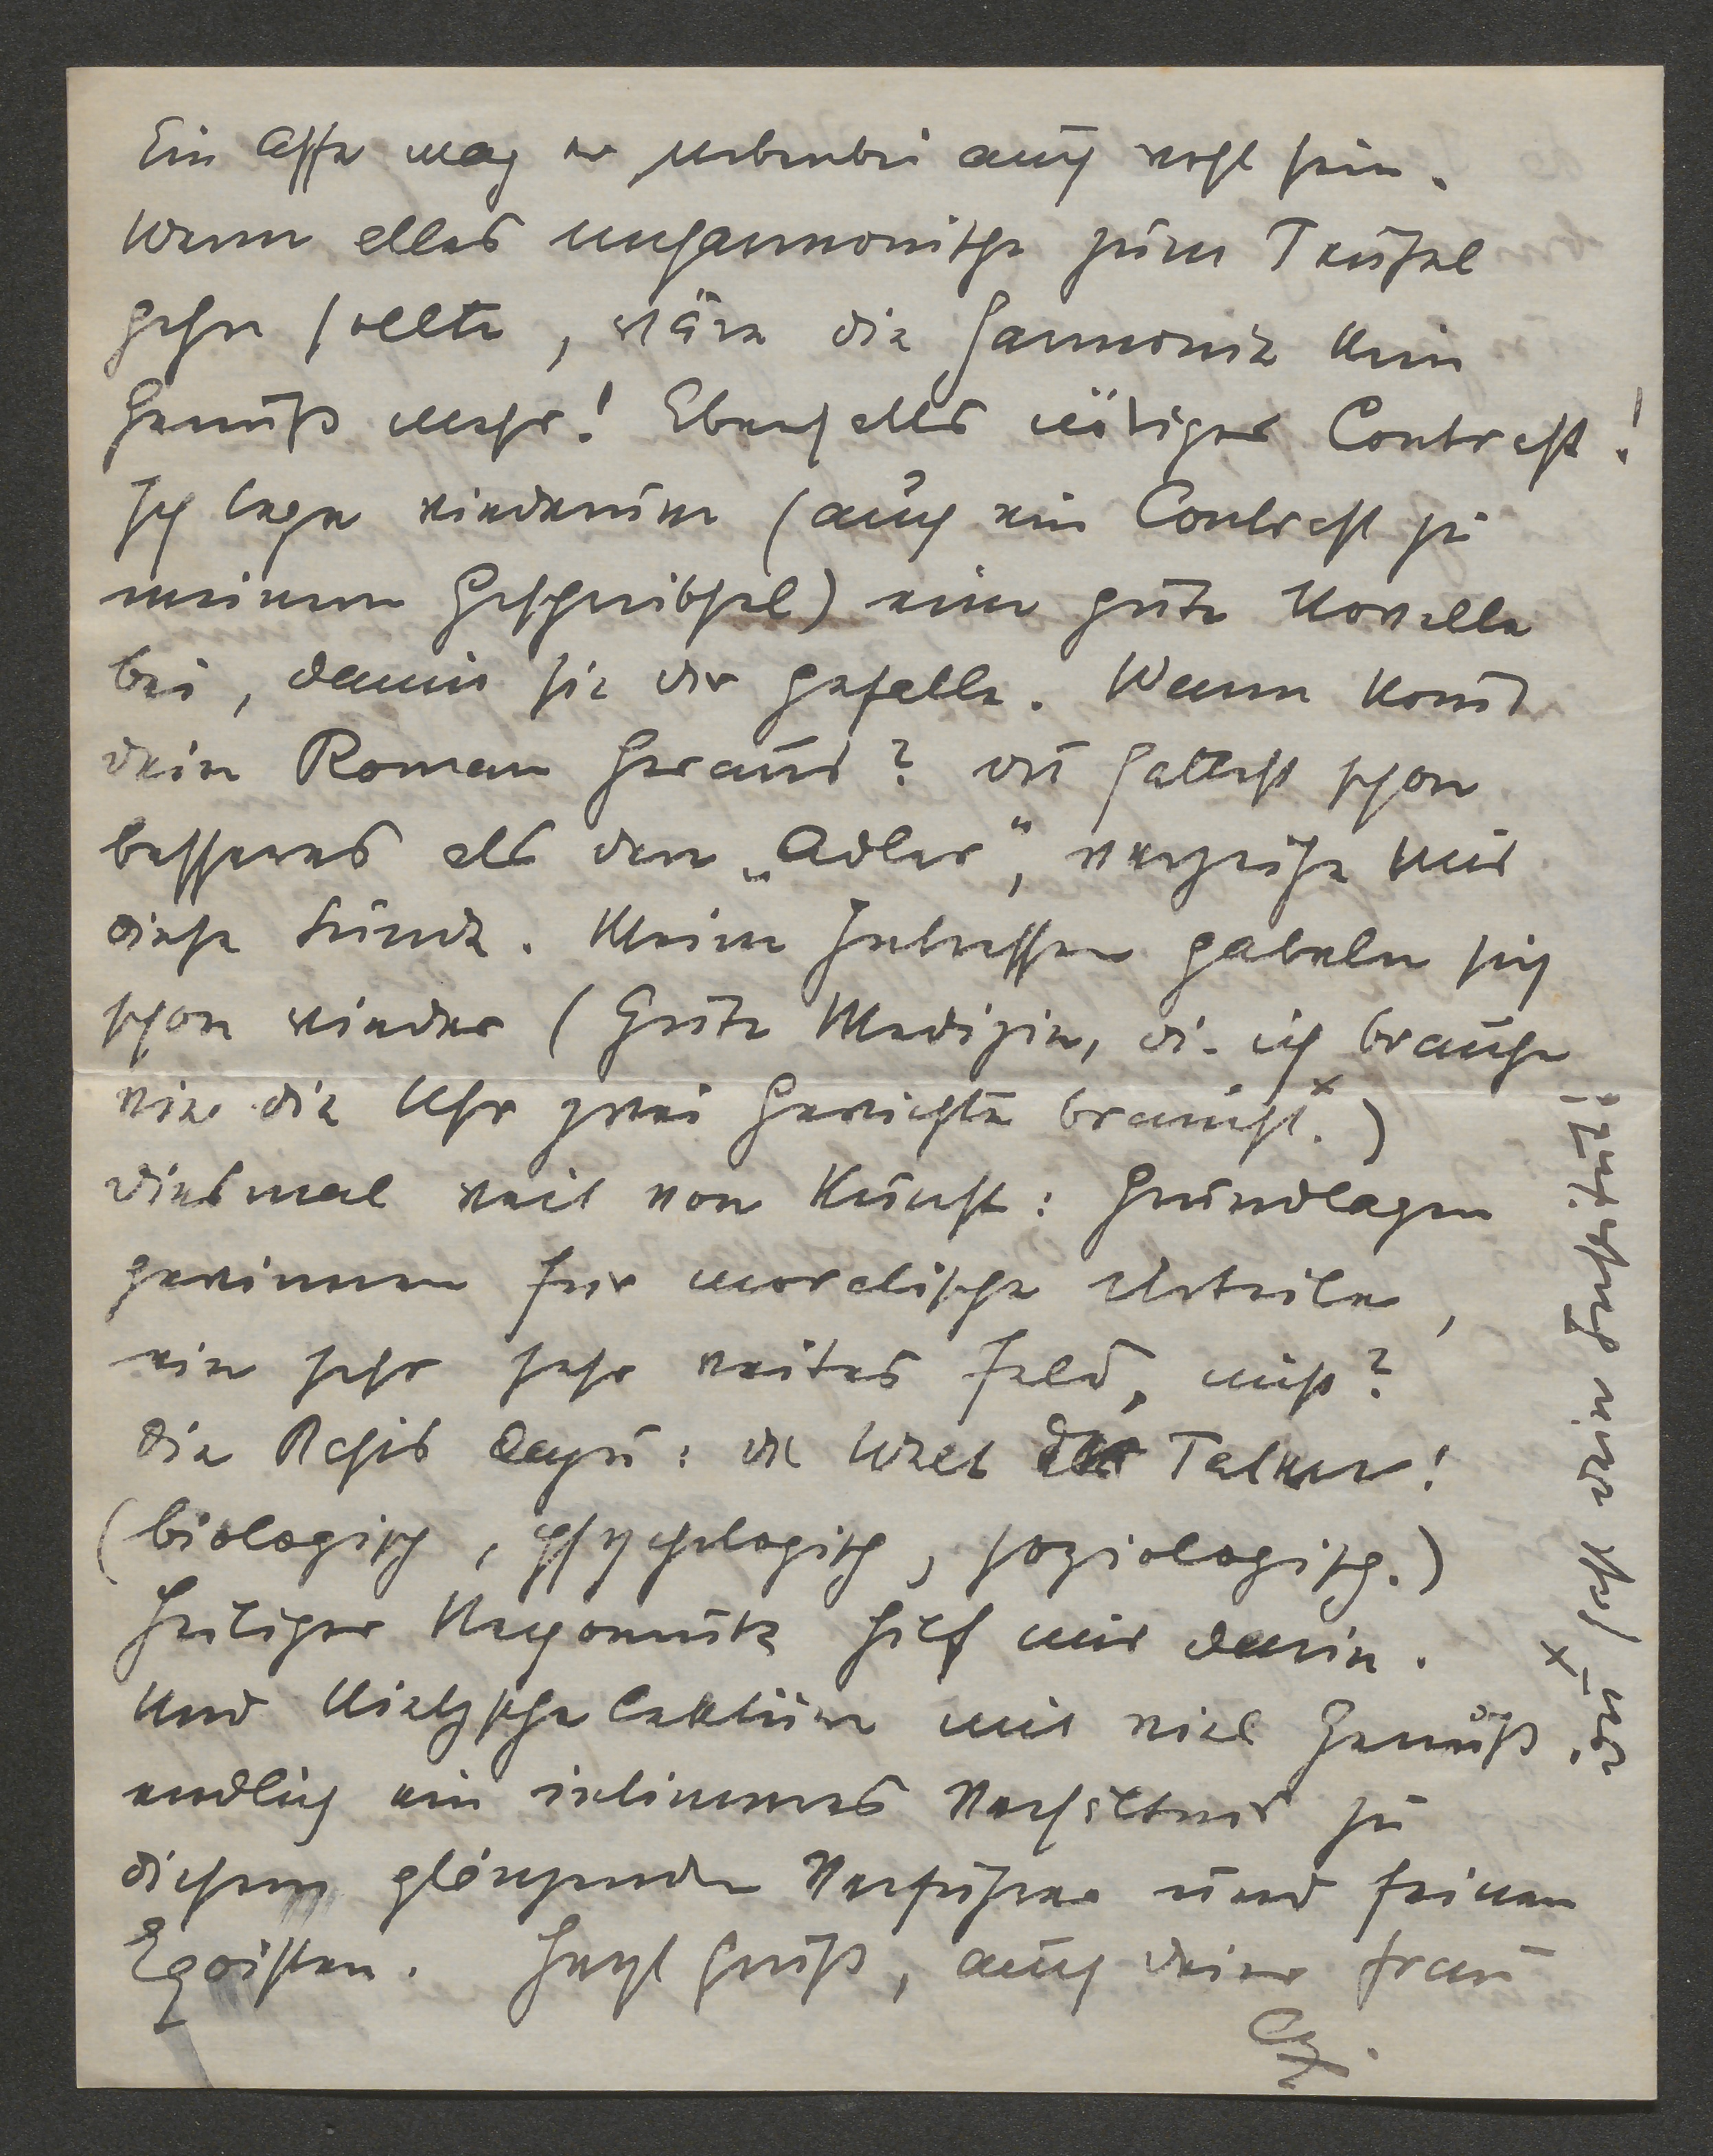 Ein Affe mag er nebenbei auch wohl sein.
Wenn alles unharmonische zum Teufel
gehen sollte, wäre die Harmonie kein
Genuß mehr! Ebenfalls nötiger Contrast!
Ich lege wiederum (auch ein Contrast zu
meinem Geschreibsel) eine gute Novelle
bei, damit sie dir gefalle. Wann komt
dein Roman heraus? du hattest schon
besseres als den „Adler“, verzeihe mir
diese Sünde. Meine Interessen gabeln sich
schon wieder (Gute Medizin, die ich brauche
wie die Uhr zwei Gewichte braucht.x)
diesmal weit von Kunst: Grundlagen
gewinnen für moralische Urteile,
ein sehr sehr weites Feld, nicht?
Die Basis dazu: die Welt der Talker!
(biologisch, psychologisch, soziologisch.)
Heiliger hilf mir darin.
Und Nietzsche lektüre mit viel Genuß
endlich ein intimeres Verhältnis zu
diesem glänzenden Verführer und feinen
Egoisten. Herzl Gruß, auch deiner Frau
x du hast dein Institut!